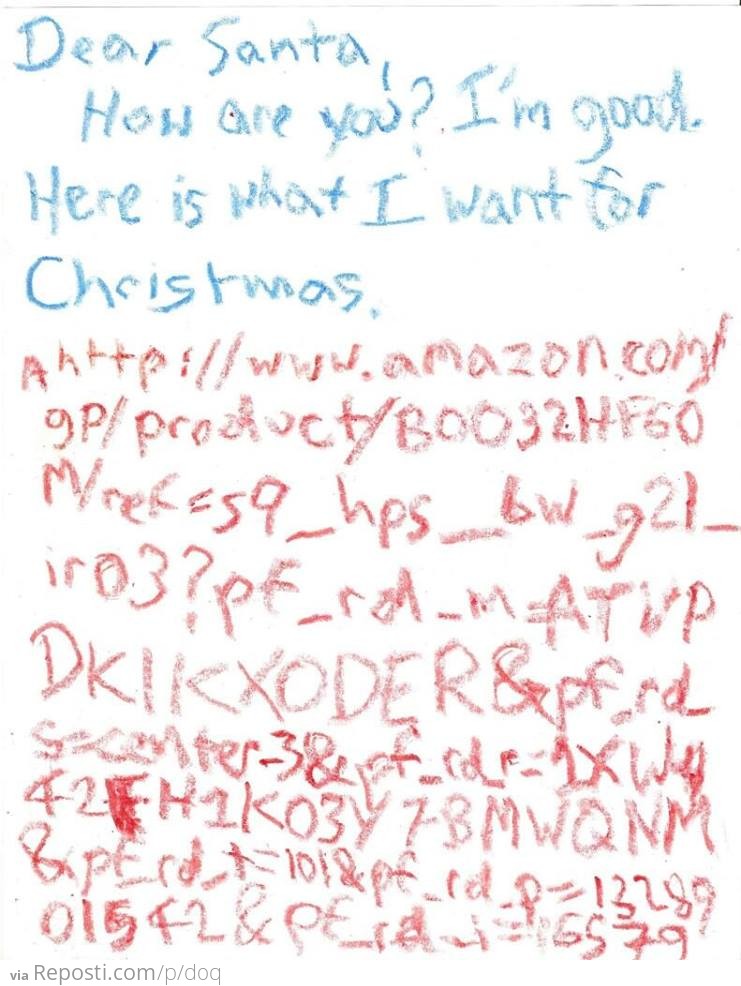 Dear Santa,
How are you? I'm good.
Here is what I want for
Christmas.
A http://www.amazon.com/
gp/product/B0032HF60
M/ref=s9_hps_bw_g21_
ir03?pf_rd_m=ATVP
DKIKX0DER&pf_rd_
s=center-3&pf_rd_r=1XWY
42FH1K03Y7BMWQNM
&pf_rd_t=101&pf_rd_p=13289
01542&pf_rd_i=16579
via Reposti.com/p/doq